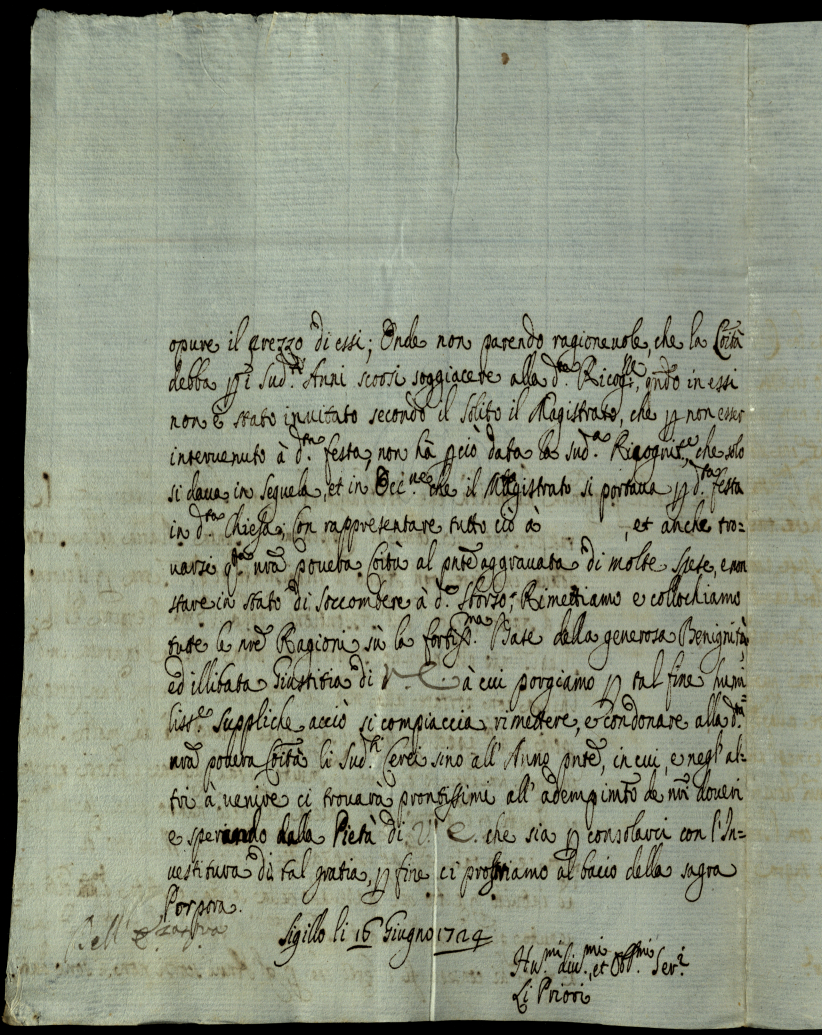 opure il prezzo di essi; Onde non parendo ragionevole, che la Coità
debba p i Sud.ti Anni scorsi soggiacere alla d.ta Ricog.ne, qndo in essi
non è stato invitato secondo il solito il Magistrato, che p non esser
intervenuto à d.ta festa, non hà pciò data la sud.a Ricognit.e, che solo
si dava in sequela, et in Occ.ne che il Magistrato si portava p d.ta festa
in d.ta Chiesa; Con rappresentare tutto ciò à , et anche tro=
varsi q.ta nra povera Coità al pnte aggravata di molte spese, e non
stare in stato di soccombere à d.o sborso; Rimettiamo e collochiamo
tutte le nre Ragioni sù la fortiss.ma Base della generosa Benignità,
ed illibata Giustitia di V. E. à cui porgiamo p tal fine humi=
liss.e suppliche acciò si compiaccia rimettere, e condonare alla d.ta
nra povera Coità li Sud.ti Cerei sino all' Anno pnte, in cui, e negl' al=
tri à venire ci trovarà prontissimi all' adempimto de nri doveri
e sperando dalla Pietà di V. E. che sia p consolarci con l' In=
vestitura di tal gratia, p fine ci prostriamo al bacio della sagra
Porpora.
Dell' E
Sigillo li 16 Giugno 1724
Hu.mi Div.mi, et Obb.mi Ser.i
Li Priori